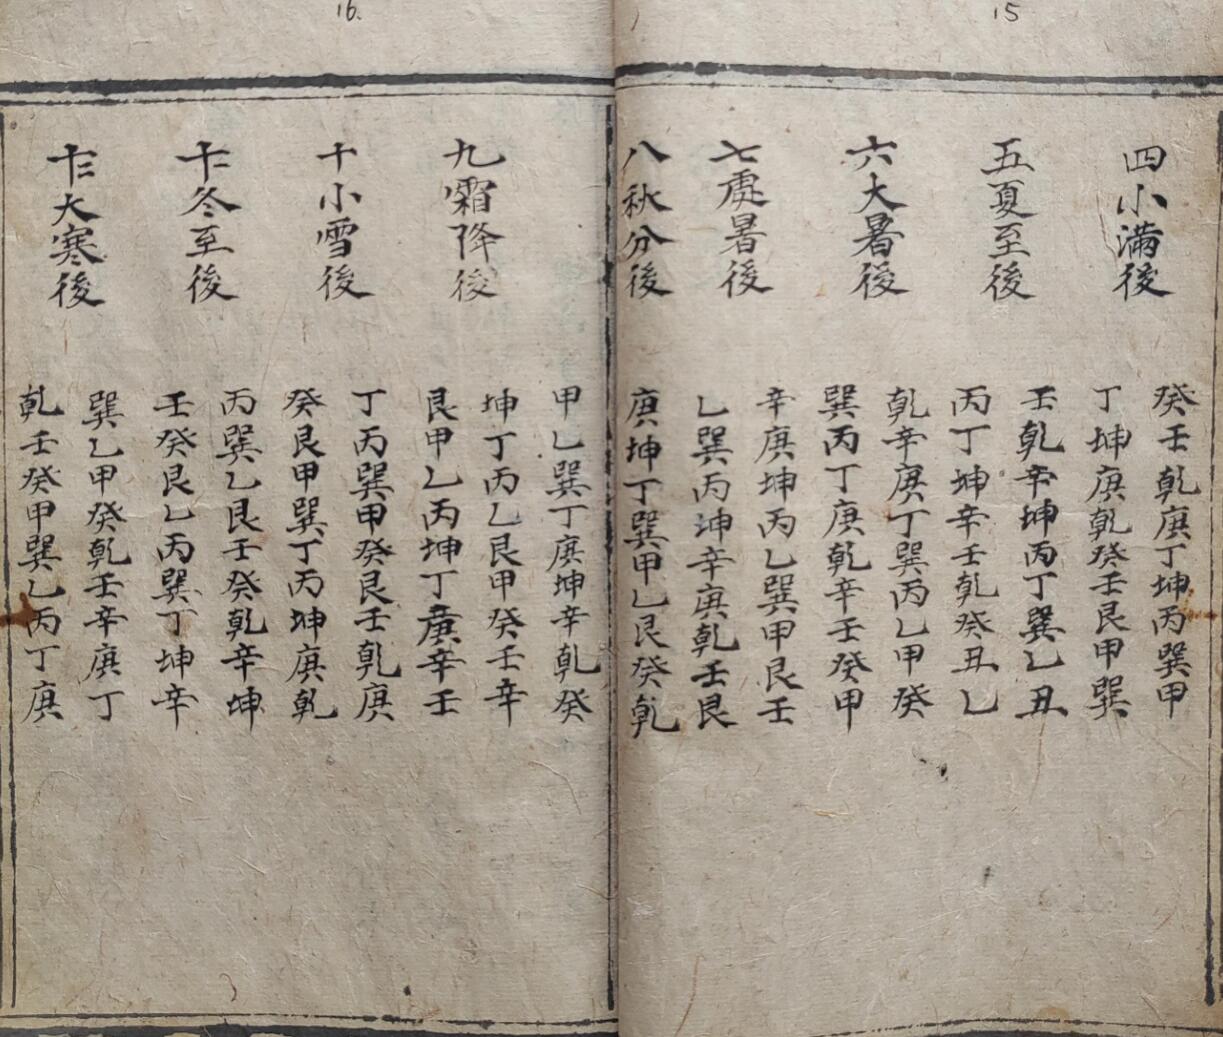 15
四小满後
癸壬乾庚丁坤丙巽甲
丁坤庚乾癸壬艮甲巽
五夏至後
壬乾辛坤丙丁巽乙丑
丙丁坤辛壬乾癸丑乙
六大暑後
乾辛庚丁巽丙乙甲癸
巽丙丁庚乾辛壬癸甲
七處暑後
辛庚坤丙乙巽甲艮壬
乙巽丙坤辛庚乾壬艮
八秋分後
庚坤丁巽甲乙艮癸乾
16.
甲乙巽丁庚坤辛乾癸
九霜降後
坤丁丙乙艮甲癸壬辛
艮甲乙丙坤丁庚辛壬
十小雪後
丁丙巽甲癸艮壬乾庚
癸艮甲巽丁丙坤庚乾
十二冬至後
丙巽乙艮壬癸乾辛坤
壬癸艮乙丙巽丁坤辛
十三大寒後
巽乙甲癸乾壬辛庚丁
乾壬癸甲巽乙丙丁庚